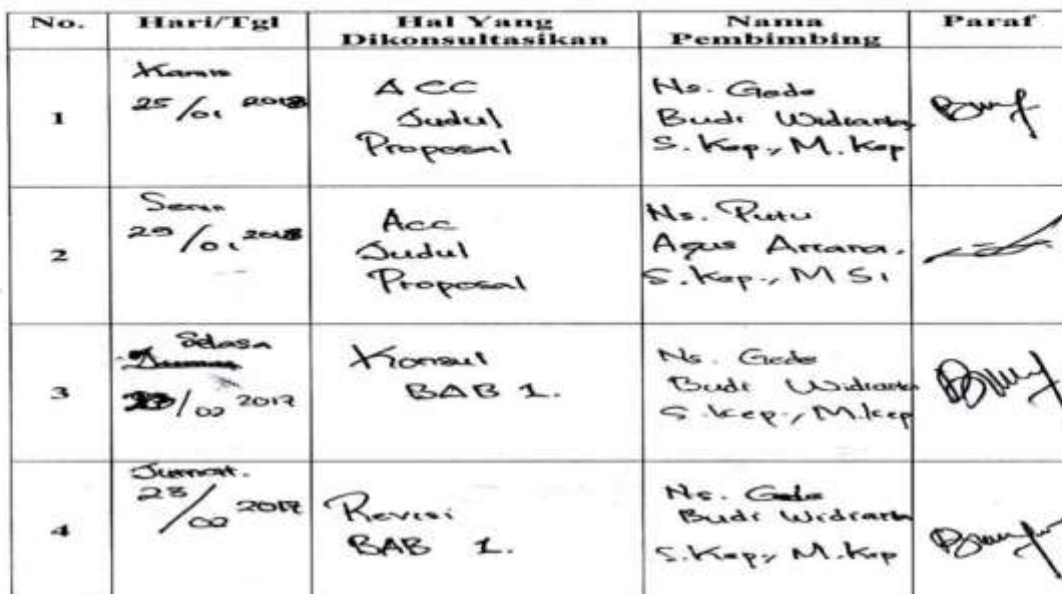 No. Hari/Tgl Hal Yang Dikonsultasikan Nama Pembimbing Paraf
1
Kamis
25/01 2018
ACC
Judul
Proposal
Ns. Gede
Budi Widiarta,
S.Kep., M.Kep
2
Senin
29/01 2018
Acc
Judul
Proposal
Ns. Putu
Agus Ariana.
S.Kep., M Si
3
Selasa
/02 2017
Konsul
BAB 1.
Ns. Gede
Budi Widiarta
S.kep., M.kep
4
Jumat.
23/02 2017
Revisi
BAB 1.
Ns. Gede
Budi Widiarta
S.Kep., M.Kep